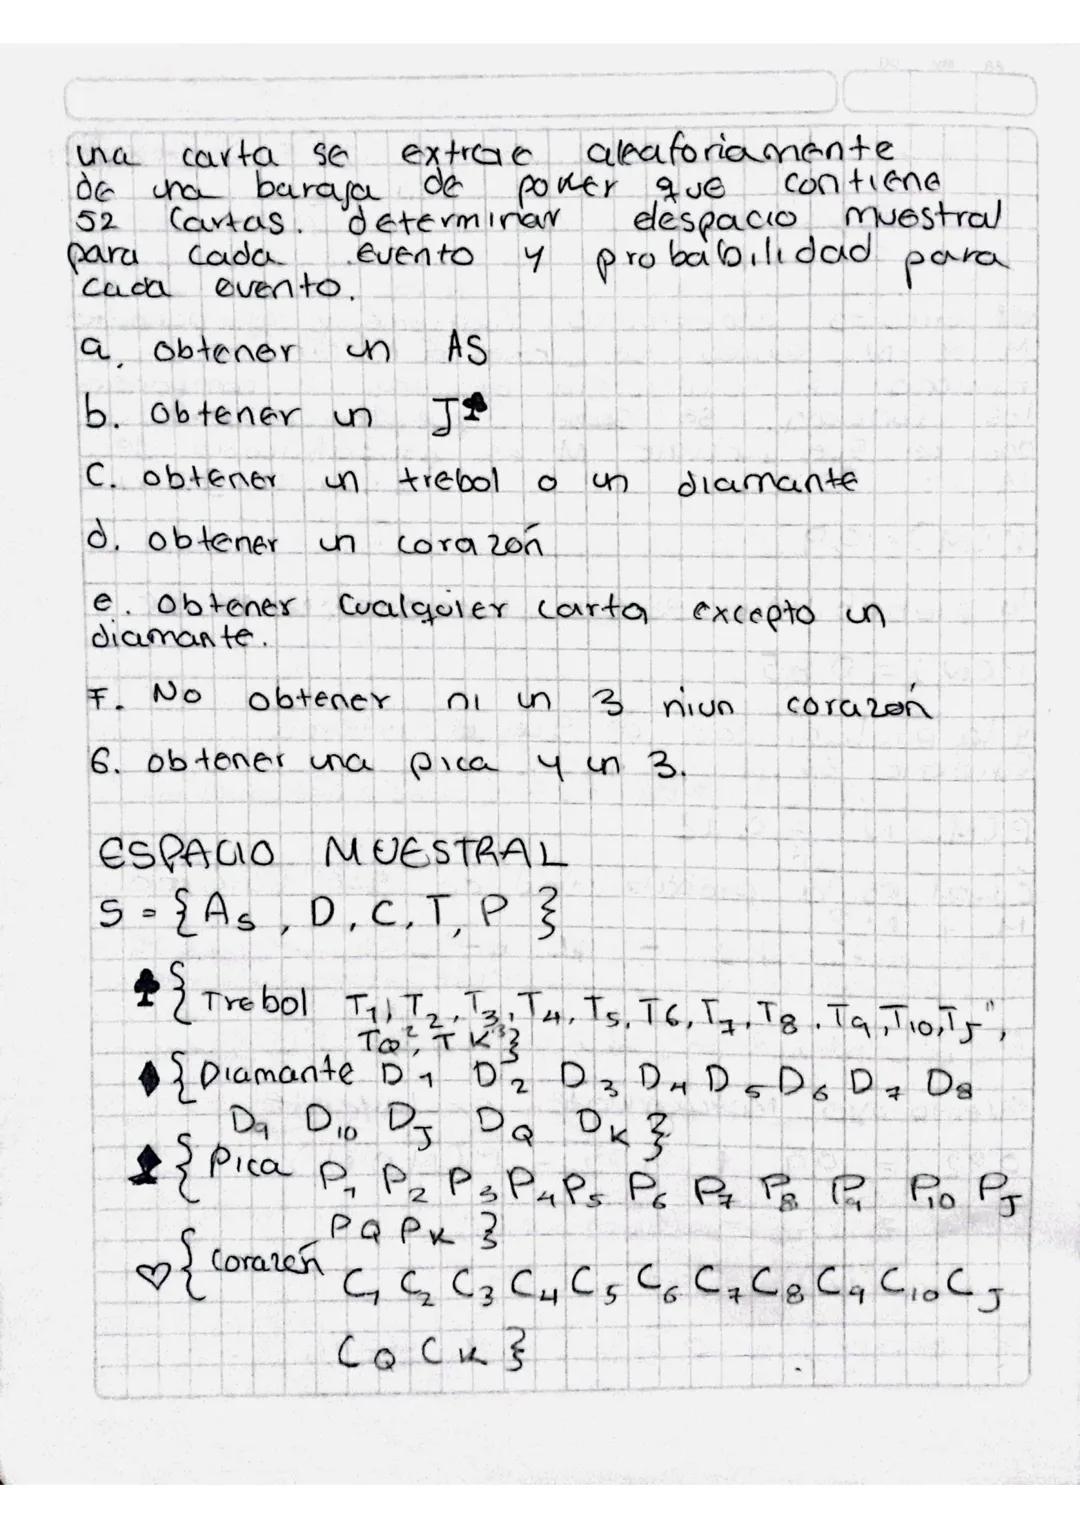 una carta se extrae aleaforiamente
de una baraja de poker que contiene
52 Cartas. determinar elespacio muestral
para cada evento y probabilidad para
cada evento.
a. obtener un AS
b. obtener un J♣
C. obtener un trebol o un diamante
d. obtener un corazón
e. Obtener Cualquier carta excepto un
diamante.
F. No obtener ni un 3 niun corazón
6. obtener una pica y un 3.
ESPACIO MUESTRAL
S = {As, D, C, T, P }
♣ { Trebol T1, T2, T3, T4, T5, T6, T7, T8, T9, T10, TJ",
TQ², TK"3}
♦ { Diamante D1 D2 D3 D4 D5 D6 D7 D8
D9 D10 DJ DQ DK }
♠ { Pica P1 P2 P3 P4 P5 P6 P7 P8 P9 P10 PJ
PQ PK }
♡ { Corazón C1 C2 C3 C4 C5 C6 C7 C8 C9 C10 CJ
CQ CK }